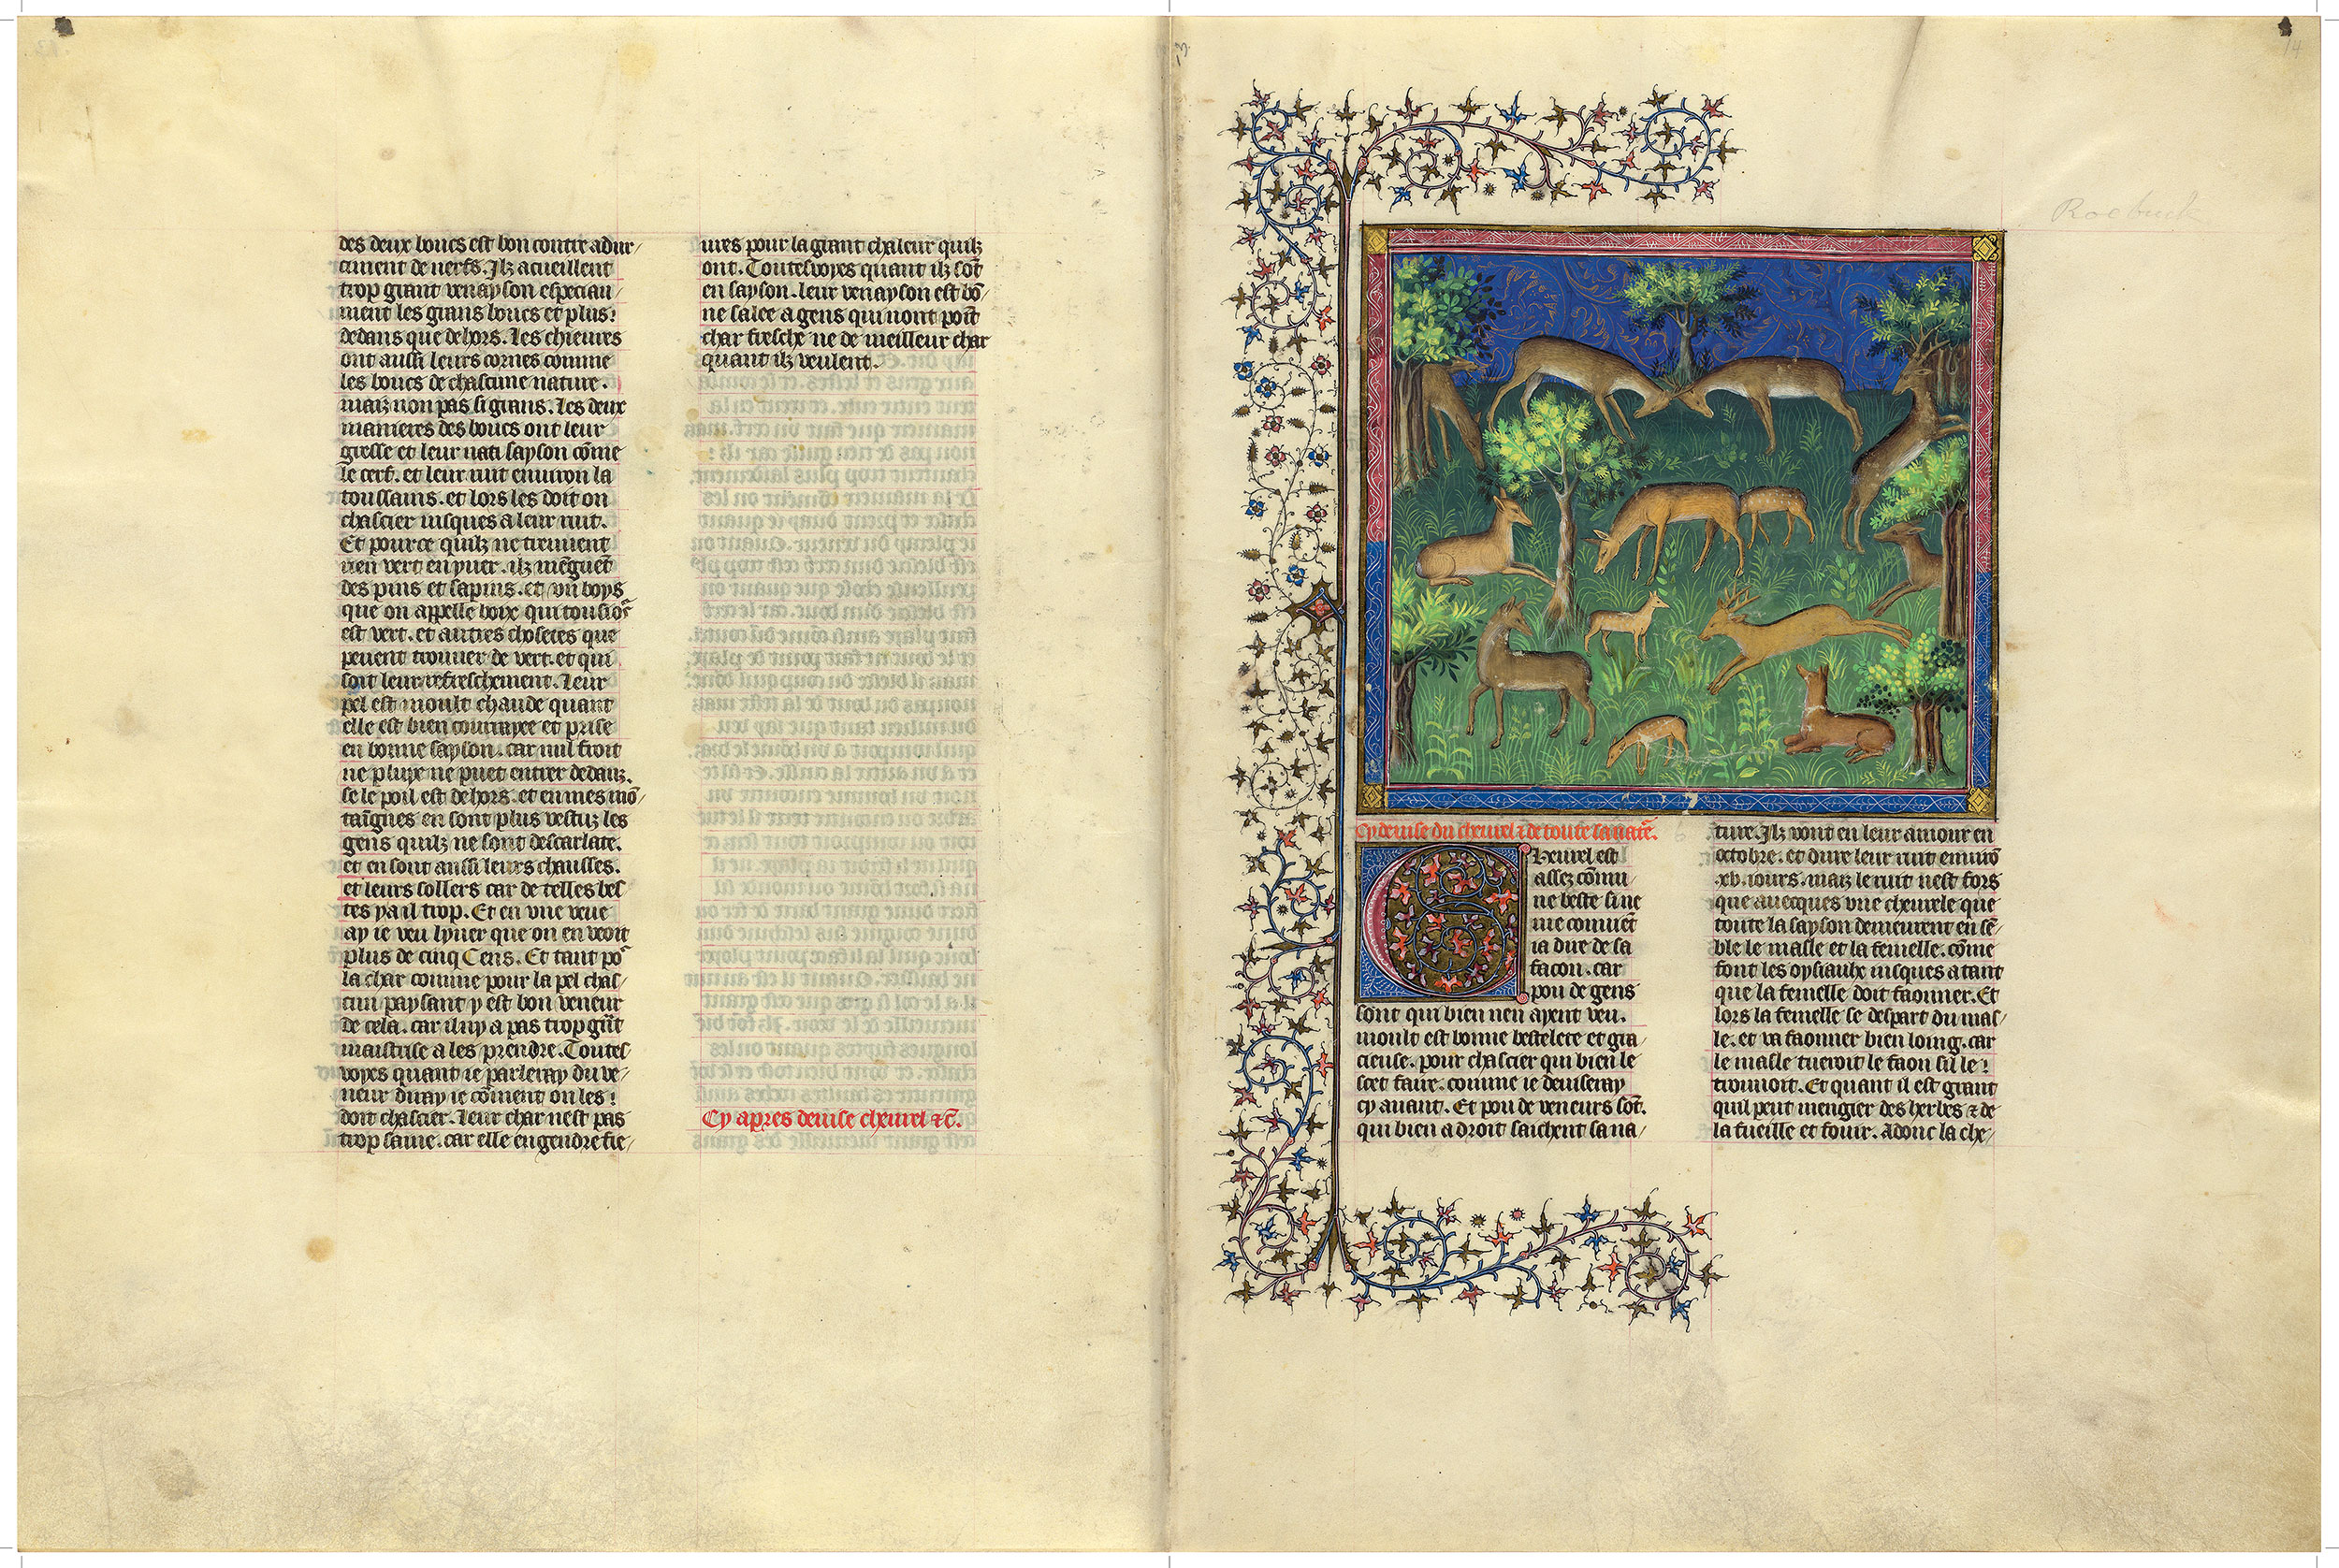 des deux boucs est bon contre adur/
ciment de nerfs. Ilz acueillent
trop grant venayson especiau/
ment les grans boucs et plus:
dedans que dehors. Les chieures
ont aussi leurs cornes comme
les boucs de chascune nature.
maiz non pas si grans. Les deux
manieres des boucs ont leur
gresse et leur saysõn cõme
le cerf. et leur ruit enuiron la
toussains. et lors les doit on
chascier iusques a leur ruit.
Et pource quilz ne treuuent
rien vert en yuer. ilz mẽguẽt
des pins et sapins. et vn boys
que on appelle boix qui tousiors
est vert. et autres choseres que
peuent trouuer de vert. et qui
soit leur refreschement. Leur
pel est moult chaude quant
elle est bien courrayee et prise
en bonne sayson. car nul froit
ne pluye ne puet entrer dedanz.
se le poil est dehors. et en mes mõ/
taignes en sont plus vestuz les
gens quilz ne sont descarlate.
et en sont aussi leurs chausses.
et leurs sollers car de telles bes
tes ya il trop. Et en vne veue
ay ie veu lyuer que on en veoit
plus de cinq Cens. Et tant põ
la char comme pour la pel chas/
cun paysant y est bon veneur
de cela. car il ny a pas trop grãt
maistrise a les prendre. Toutes
voyes quant ie parleray du ve/
neur diray ie cõment on les:
doit chascier. Leur char nest pas
trop saine. car elle engendre fie/
ures pour la grant chaleur quilz
ont. Toutesvoyes quant ilz sõt
en sayson. leur venayson est bõ/
ne salee a gens qui nont point
char fresche ne de meilleur char
quant ilz veulent.
Cy apres deuise cheurel &c̃.
Roebuck
14
Cy deuise du cheurel & de toute sa natẽ.
Cheurel est
assez cõmu/
ne beste si ne
me conuẽt
ia dire de sa
facon. car
pou de gens
sont qui bien nen ayent veu.
moult est bonne bestelete et gra/
cieuse. pour chascier qui bien le
scet faire. comme ie deuiseray
cy auant. Et pou de veneurs sõt.
qui bien a droit saichent sa na/
ture. Ilz vont en leur amour en
octobre. et dure leur ruit enuirõ
.xv. iours. maiz le ruit nest fors
que auecques vne cheurele que
toute la sayson demeurent en sẽ/
ble le masle et la femelle. cõme
font les oysiaulx iusques a tant
que la femelle doit faonner. Et
lors la femelle se despart du mas/
le. et va faonner bien loing. car
le masle tueroit le faon sil le:
trouuoit. Et quant il est grant
quil peut mengier des herbes & de
la fueille et fouir. Adonc la che/